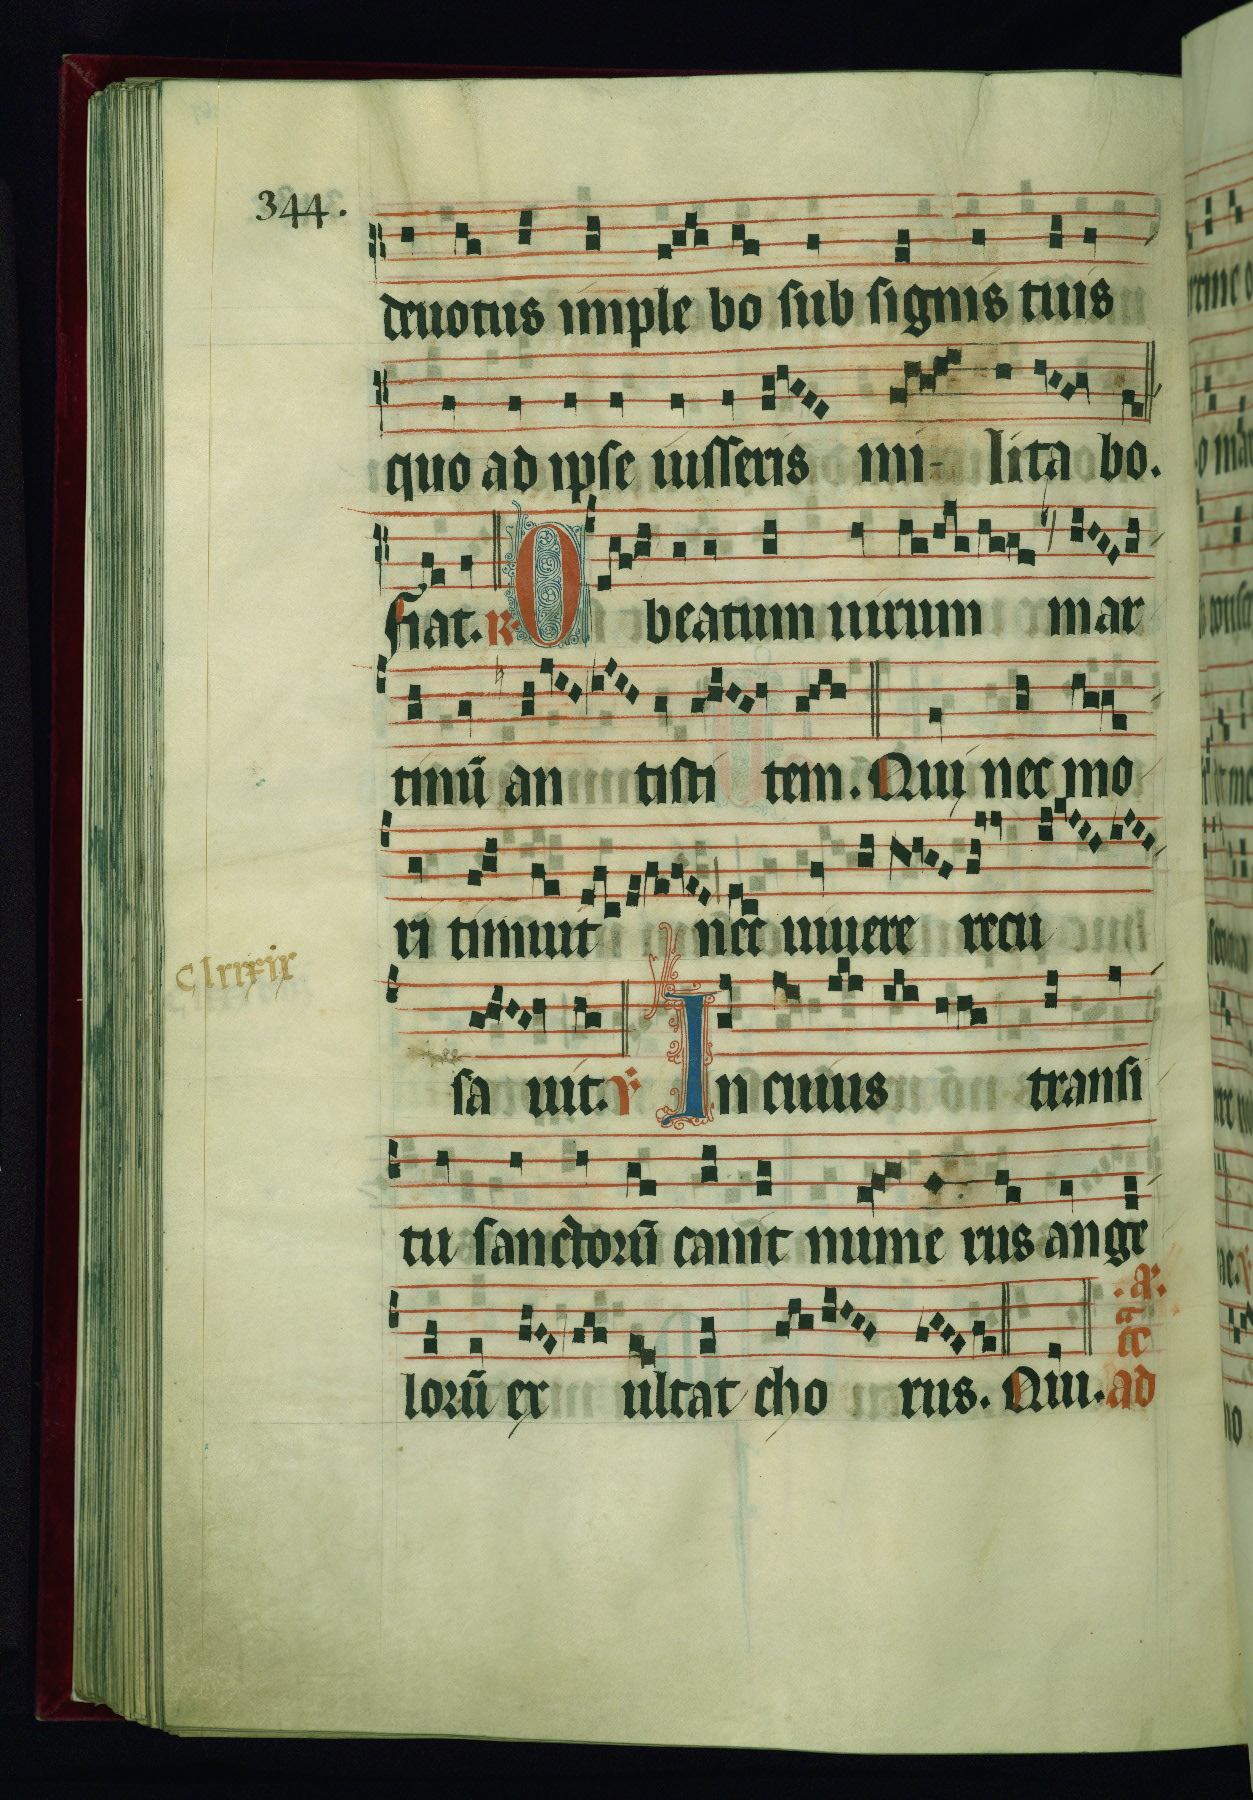 344.
deuotus imple bo sub signis tuis
quo ad ipse iusseris mi- lita bo.
fiat. R. O beatum uirum mar
tinū an tisti tem. Qui nec mo
ri timuit nec uiuere recu
clxxxix
sa uit. V. In cuius transi
tu sanctorū canit nume rus ange
lorū ex ultat cho rus. Qui. ad